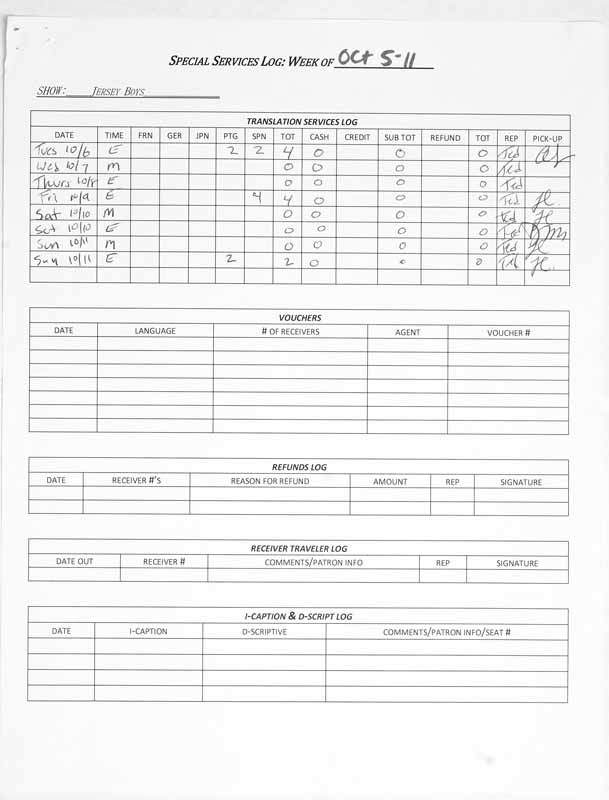 SPECIAL SERVICES LOG: WEEK OF OCT 5-11
SHOW: JERSEY BOYS
TRANSLATION SERVICES LOG
DATE TIME FRN GER JPN PTG SPN TOT CASH CREDIT SUB TOT REFUND TOT REP PICK-UP
Tues 10/6 E 2 2 4 0 0 0 Ted
Wed 10/7 M 0 0 0 0 Ted
Thurs 10/8 E 0 0 0 0 Ted
Fri 10/9 E 4 4 0 0 0 Ted
Sat 10/10 M 0 0 0 0 Ted
Sat 10/10 E 0 0 0 0 Ted
Sun 10/11 M 0 0 0 0 Ted
Sun 10/11 E 2 2 0 0 0 Ted
VOUCHERS
DATE LANGUAGE # OF RECEIVERS AGENT VOUCHER #
REFUNDS LOG
DATE RECEIVER #'S REASON FOR REFUND AMOUNT REP SIGNATURE
RECEIVER TRAVELER LOG
DATE OUT RECEIVER # COMMENTS/PATRON INFO REP SIGNATURE
I-CAPTION & D-SCRIPT LOG
DATE I-CAPTION D-SCRIPTIVE COMMENTS/PATRON INFO/SEAT #